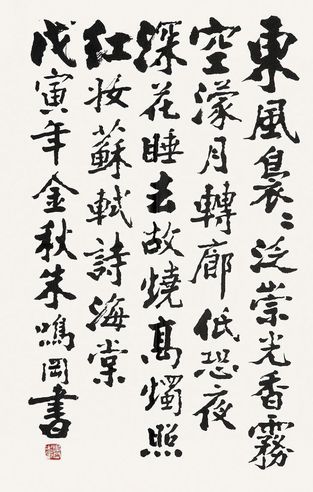 東風裊〻泛崇光香霧
空濛月轉廊祗恐夜
深花睡去故燒高燭照
紅妝蘇軾詩海棠
戊寅年金秋朱鳴岡書